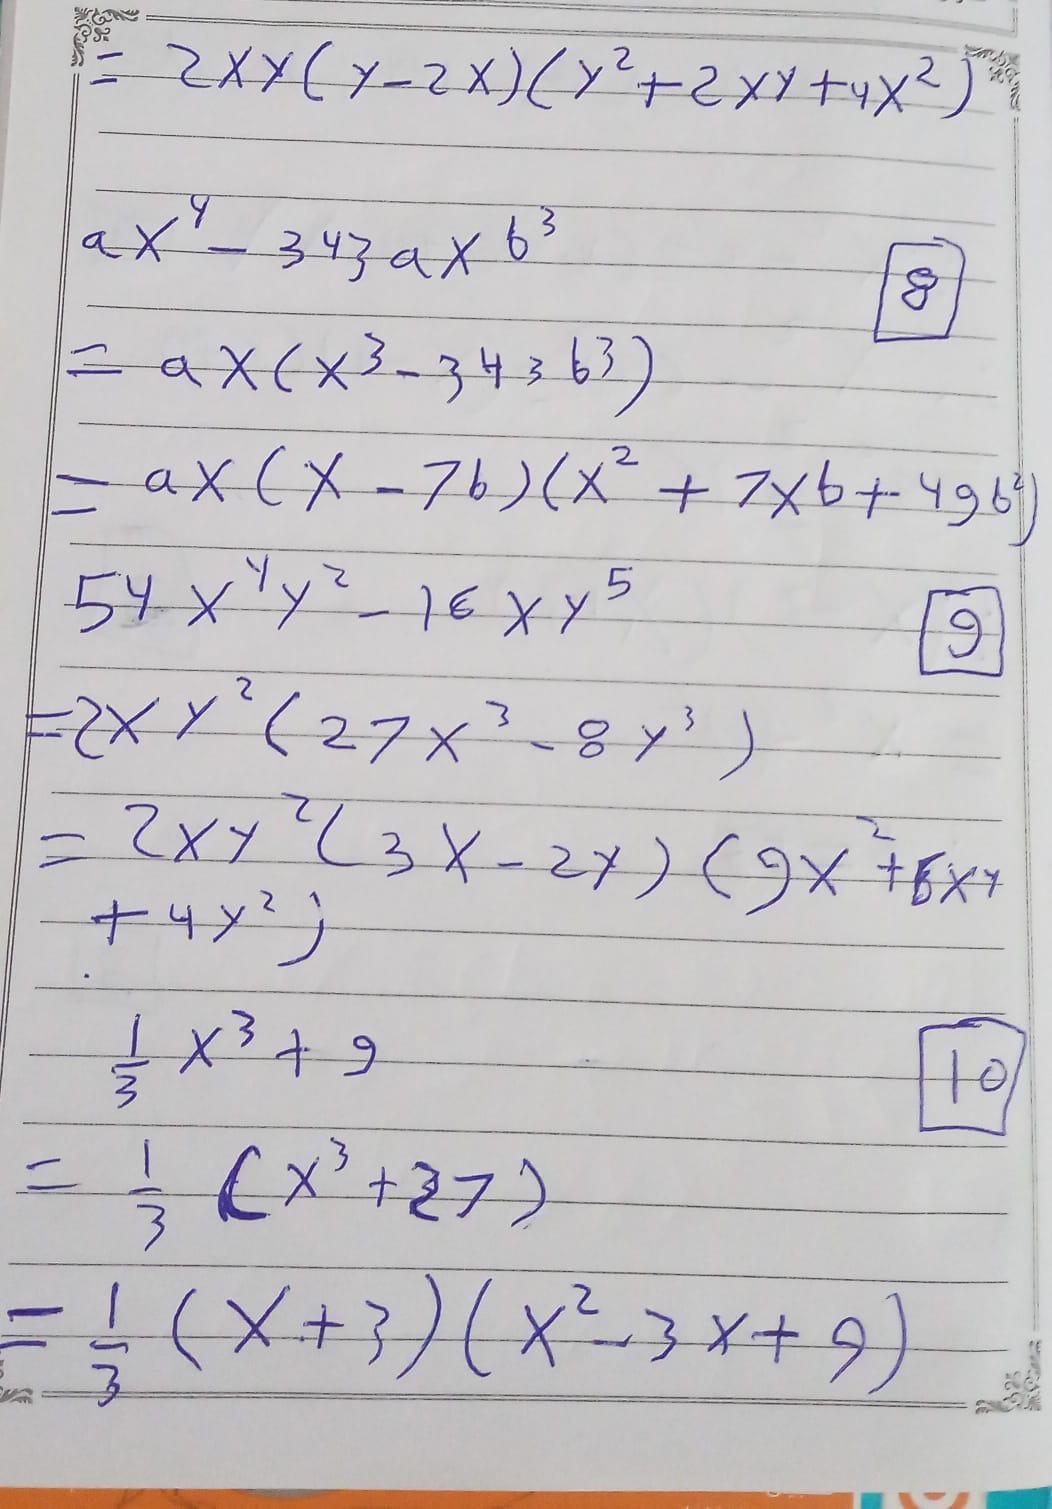 = 2xy(y-2x)(y²+2xy+4x²)
ax⁴ - 343axb³
8
= ax(x³-343b³)
= ax(x-7b)(x²+7xb+49b²)
54x⁴y² - 16xy⁵
9
=2xy²(27x³-8y³)
= 2xy²(3x-2y)(9x²+6xy
+4y²)
1/3 x³+9
10
= 1/3 (x³+27)
= 1/3 (x+3)(x²-3x+9)